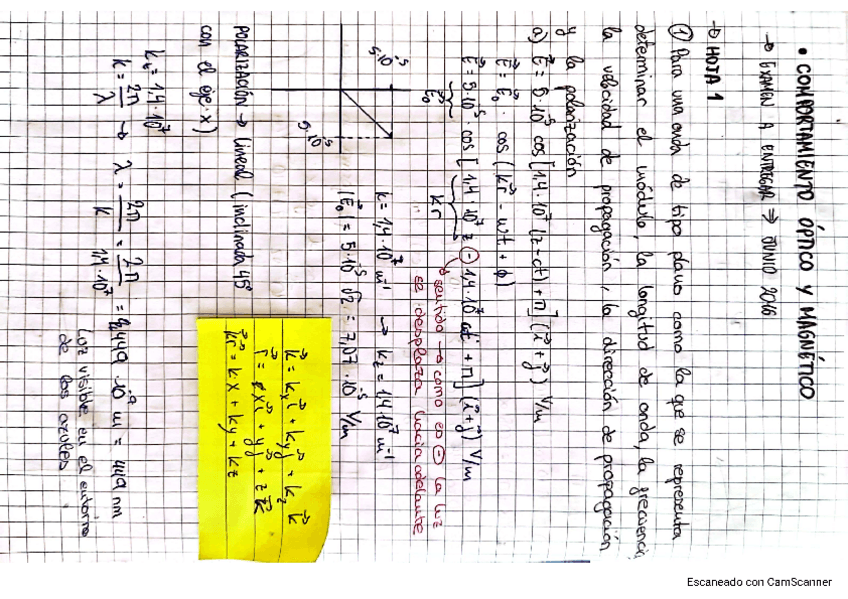 • COMPORTAMIENTO ÓPTICO Y MAGNÉTICO
→ EXAMEN A ENTREGAR ⇒ JUNIO 2016
→ HOJA 1
① Para una onda de tipo plano como la que se representa
determinar el módulo, la longitud de onda, la frecuencia,
la velocidad de propagación, la dirección de propagación
y la polarización
a) E⃗ = 5·10⁵ cos[1,4·10⁷(z-ct)+π](i⃗+j⃗) V/m
E⃗ = E⃗₀ · cos(k⃗r⃗ - ωt + ϕ)
E⃗ = 5·10⁵ cos[1,4·10⁷z - 1,4·10⁷ct + π](i⃗+j⃗) V/m
E⃗₀
k⃗r⃗
sentido → como es ⊖ la luz
se desplaza hacia adelante
5·10⁵
5·10⁵
k = 1,4·10⁷ m⁻¹ → k_z = 1,4·10⁷ m⁻¹
|E⃗₀| = 5·10⁵ √2 = 7,07·10⁵ V/m
POLARIZACIÓN → Lineal (inclinada 45º
con el eje x)
k⃗ = kₓi⃗ + k_yj⃗ + k_zk⃗
r⃗ = xi⃗ + yj⃗ + zk⃗
k⃗r⃗ = kx + ky + kz
k_z = 1,4·10⁷
k = 2π/λ → λ = 2π/k = 2π/1,4·10⁷ = 449·10⁻⁹ m = 449 nm
Luz visible en el entorno
de los azules
Escaneado con CamScanner